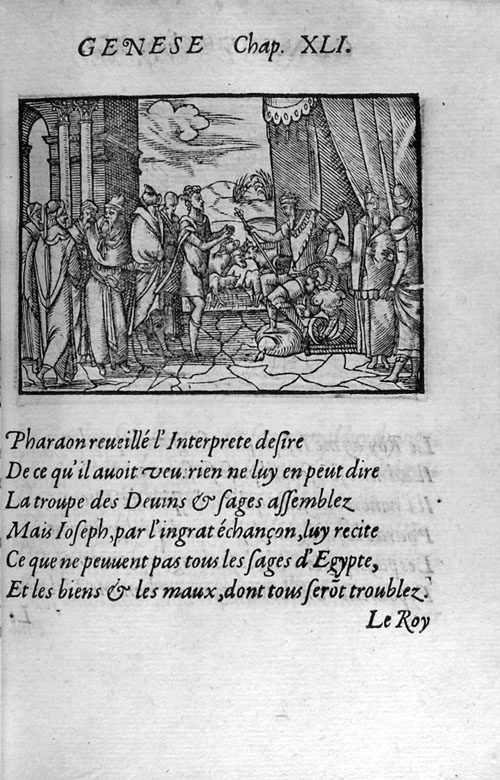 GENESE Chap. XLI.
Pharaon reueillé l'Interprete desire
De ce qu'il auoit veu: rien ne luy en peut dire
La troupe des Deuins & sages assemblez
Mais Ioseph, par l'ingrat échançon, luy recite
Ce que ne peuuent pas tous les sages d'Egypte,
Et les biens & les maux, dont tous serõt troublez.
Le Roy